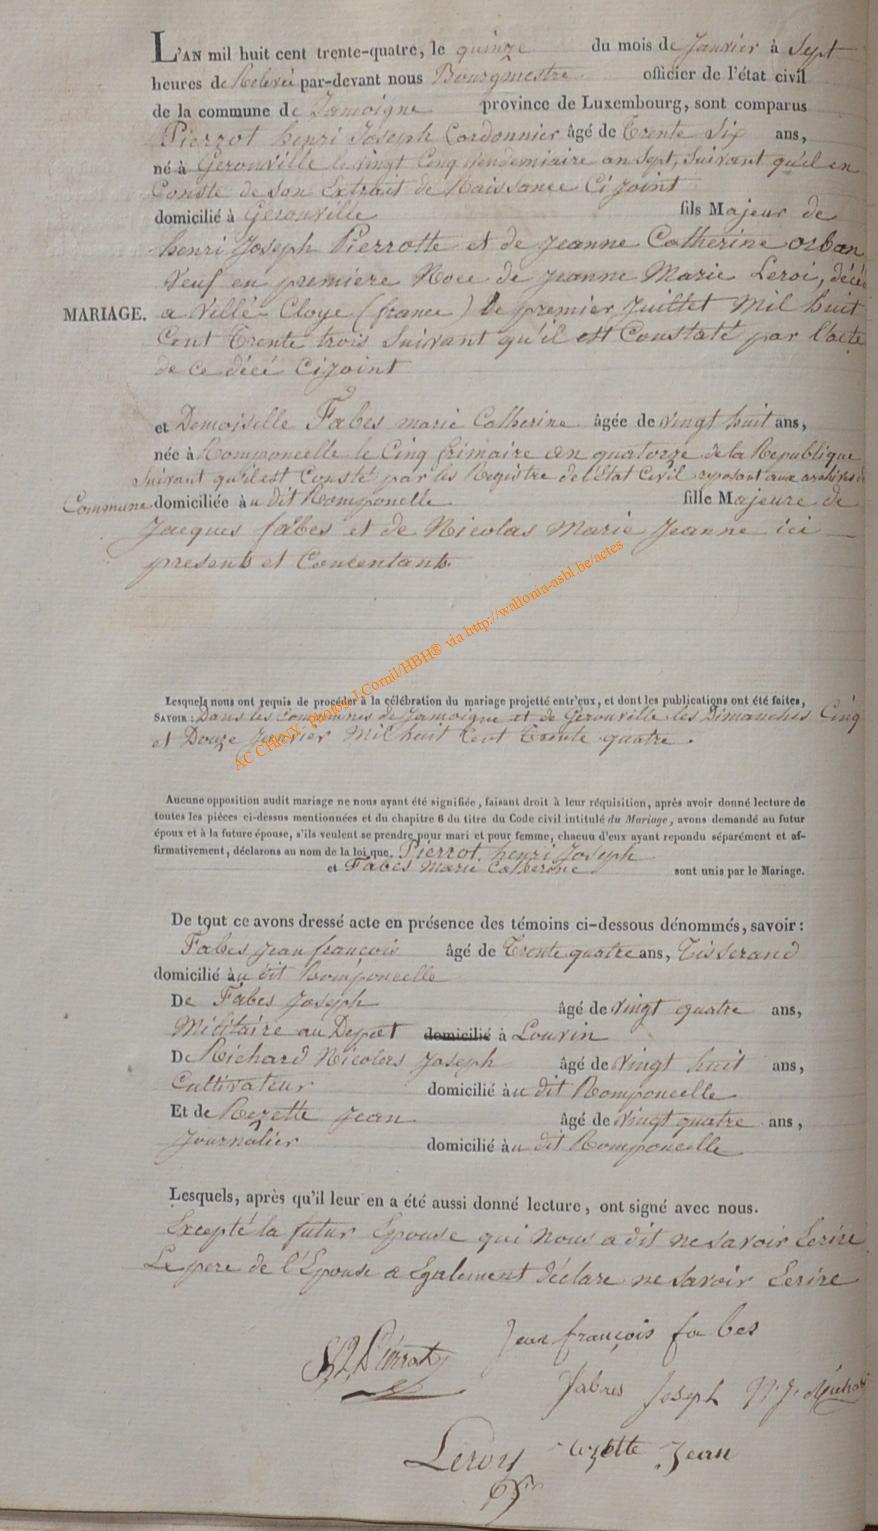 L'AN mil huit cent trente-quatre, le quinze du mois de Janvier à Sept
heures de Relevée par-devant nous Bourgmestre officier de l'état civil
de la commune de Jamoigne province de Luxembourg, sont comparus
Pierrot henri Joseph Cordonnier âgé de Trente Six ans,
né à Gerouville le vingt Cinq vendemiaire an Sept, Suivant qu'il en
Conste de son Extrait de Naissance Cijoint
domicilié à Gerouville fils Majeur de
henri Joseph Pierrotte et de Jeanne Catherine orban
Veuf en premiere Noce de Jeanne Marie Leroi, décée
MARIAGE. a Villé-Cloye (france) le premier Juillet Mil huit
Cent Trente trois Suivant qu'il est Constaté par l'acte
de ce décé Cijoint
et Demoiselle Fabes marie Catherine âgée de vingt huit ans,
née à Romponcelle le Cinq frimaire an quatorze de la Republique
Suivant qu'il est Consté par les Registre de l'Etat Civil reposant aux archives de
Commune domiciliée au dit Romponcelle fille Majeure de
Jacques fabes et de Nicolas Marie Jeanne ici
presents et Concentants.
Lesquels nous ont requis de procéder à la célébration du mariage projetté entr'eux, et dont les publications ont été faites,
SAVOIR : Dans les Communnes de Jamoigne et de Gerouville les Dimanches Cinq
et Douze Janvier Mil huit Cent Trente quatre.
Aucune opposition audit mariage ne nous ayant été signifiée, faisant droit à leur réquisition, après avoir donné lecture de
toutes les pièces ci-dessus mentionnées et du chapitre 6 du titre du Code civil intitulé du Mariage, avons demandé au futur
époux et à la future épouse, s'ils veulent se prendre pour mari et pour femme, chacun d'eux ayant repondu séparément et af-
firmativement, déclarons au nom de la loi que Pierrot henri Joseph
et Fabes Marie Catherine sont unis par le Mariage.
De tout ce avons dressé acte en présence des témoins ci-dessous dénommés, savoir :
Fabes Jean françois âgé de Trente quatre ans, Tisserand
domicilié au dit Romponcelle
De Fabes Joseph âgé de vingt quatre ans,
Militaire au Depot domicilié à Louvin
De Richard Nicolas Joseph âgé de vingt huit ans,
Cultivateur domicilié au dit Romponcelle
Et de Rezette Jean âgé de vingt quatre ans,
Journalier domicilié au dit Romponcelle
Lesquels, après qu'il leur en a été aussi donné lecture, ont signé avec nous.
Excepté la futur Epouse qui nous a dit ne savoir Ecrire
Le pere de l'Epouse a Egalement déclare ne savoir Ecrire
Jean françois fabes
Pierrot
Fabes Joseph N. J. Richard
Leroy rezette Jean
AC CHINY - Photos J. Cornil/HBH® via http://wallonia-asbl.be/actes